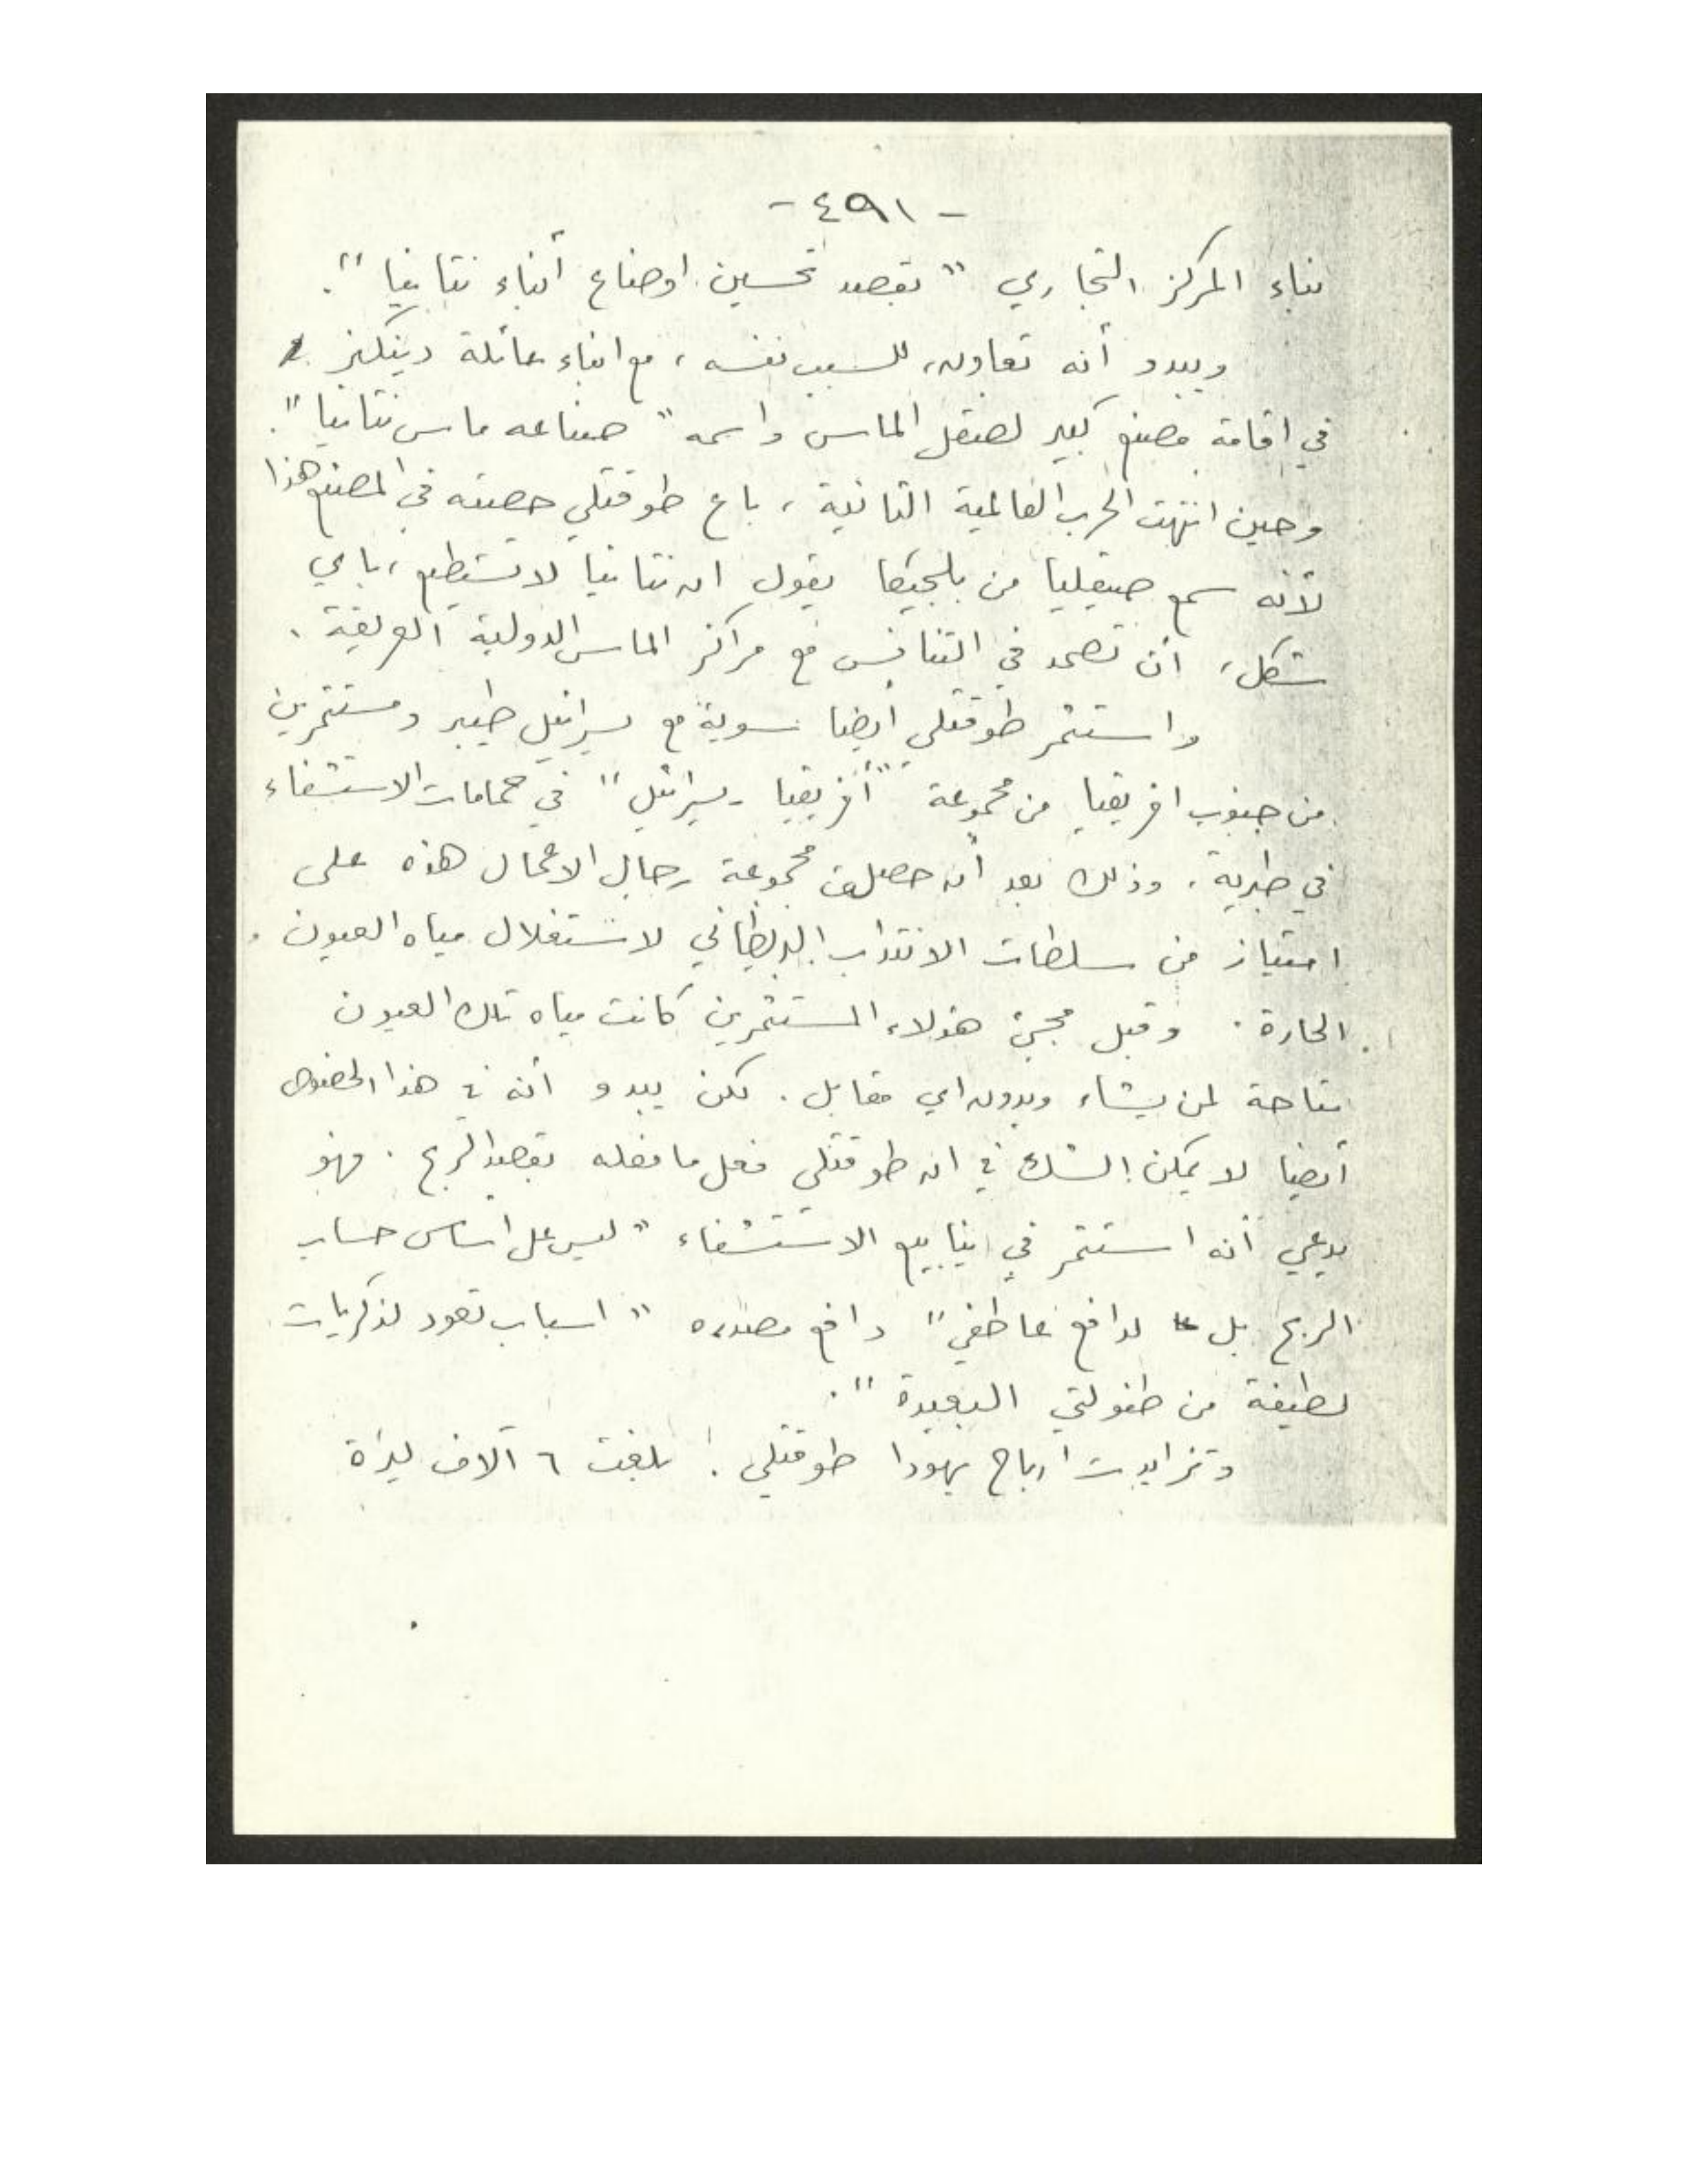 - ٤٩١ -
بناء المركز التجاري " بقصد تحسين اوضاع أبناء نتانيا ".
ويبدو أنه تعاون، للسبب نفسه، مع ابناء عائلة دينكلز
في اقامة مصنع كبير لصقل الماس واسمه " صناعه ماس نتانيا ".
وحين انتهت الحرب العالمية الثانية، باع طوقتلي حصته في المصنع هذا
لأنه سمع صيقليا من بلجيكا يقول ان نتانيا لا تستطيع، باي
شكل، ان تصمد في التنافس مع مراكز الماس الدولية العريقة.
واستثمر طوقتلي أيضا سوية مع يسرائيل طيبر ومستثمرين
من جنوب افريقيا من مجموعة " أفريقيا - يسرائيل " في حمامات الاستشفاء
في طبرية. وذلك بعد أن حصلت مجموعة رجال الاعمال هذه على
امتياز من سلطات الانتداب البريطاني لاستغلال مياه العيون
الحارة. وقبل مجيئ هؤلاء المستثمرين كانت مياه تلك العيون
متاحة لمن يشاء وبدون اي مقابل. لكن يبدو أنه في هذا الخصوص
أيضا لا يمكن الشك في ان طوقتلي فعل ما فعله بقصد الربح. فهو
يدعي أنه استثمر في ينابيع الاستشفاء " ليس على اساس حساب
الربح بل لدافع عاطفي " دافع مصدره " اسباب تعود لذكريات
لطيفة من طفولتي البعيدة ".
وتزايدت ارباح يهودا طوقتلي: بلغت ٦ آلاف ليرة